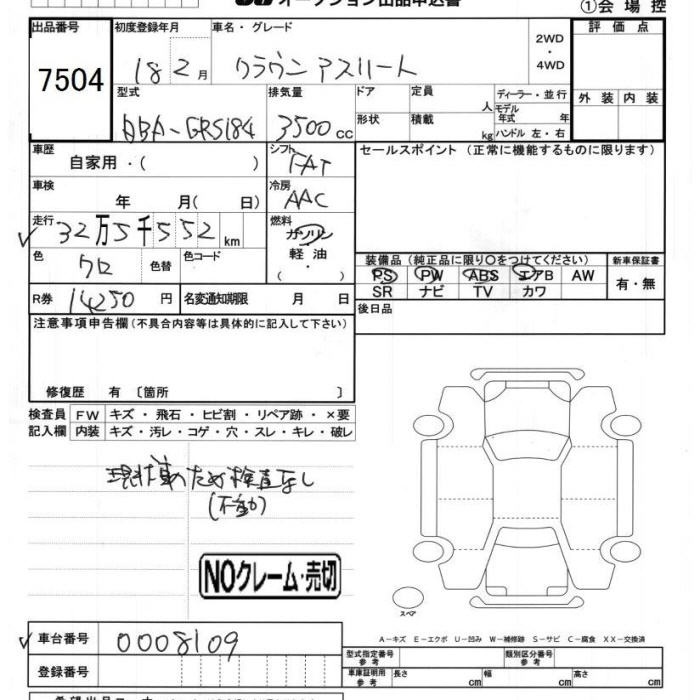 オークション出品申込書
①会場控
出品番号 初度登録年月 車名・グレード 評価点
7504 18 2月 クラウン アスリート 2WD・4WD
型式 排気量 ドア 定員 人 ディーラー・並行 外装 内装
ABA-GRS184 3500cc 形状 積載 kg モデル年式 年 ハンドル 左・右
車歴 自家用・( ) シフト FAT セールスポイント (正常に機能するものに限ります)
車検 年 月( 日) 冷房 AAC
走行 32万5千552km 燃料 ガソリン 軽油 ( ・ )
色 クロ 色替 色コード 装備品(純正品に限り○をつけてください) 新車保証書
PS PW ABS エアB AW 有・無
SR ナビ TV カワ
R券 14250円 名変通知期限 月 日 後日品
注意事項申告欄(不具合内容等は具体的に記入して下さい)
修復歴 有 〔箇所 〕
検査員 FW キズ・飛石・ヒビ割・リペア跡・×要
記入欄 内装 キズ・汚レ・コゲ・穴・スレ・キレ・破レ
現状車のため検査なし
(不動)
NOクレーム・売切
スペア
A-キズ E-エクボ U-凹み W-補修跡 S-サビ C-腐食 XX-交換済
車台番号 0008109 型式指定番号 参考 類別区分番号 参考
登録番号 車庫証明用 参考 長さ cm 幅 cm 高さ cm